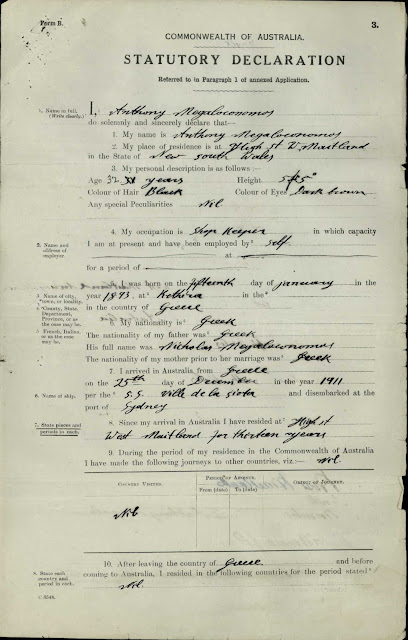 Form B.
3.
COMMONWEALTH OF AUSTRALIA.
STATUTORY DECLARATION
Referred to in Paragraph 1 of annexed Application.
1. Name in full. (Write clearly.)
I, Anthony Megaloconomos
do solemnly and sincerely declare that—
1. My name is Anthony Megaloconomos
2. My place of residence is at High St W. Maitland
in the State of New South Wales
3. My personal description is as follows :—
Age 32 years Height 5ft 5"
Colour of Hair Black Colour of Eyes Dark brown
Any special Peculiarities Nil
4. My occupation is Shop Keeper in which capacity
2. Name and address of employer.
I am at present and have been employed by² self
at
for a period of
5. I was born on the fifteenth day of January in the
3. Name of city, town, or locality.
year 1893 at³ Kythira in the⁴
4. County, State, Department, Province, or as the case may be.
in the country of Greece
6. My nationality is⁵ Greek
5. French, Italian, or as the case may be.
The nationality of my father was⁵ Greek
His full name was Nicholas Megaloconomos
The nationality of my mother prior to her marriage was⁵ Greek
7. I arrived in Australia from Greece
on the 25th day of December in the year 1911
6. Name of ship.
per the⁶ S.S. Ville de la Siotar and disembarked at the
port of Sydney
7. State places and periods in each.
8. Since my arrival in Australia I have resided at⁷ High St
West Maitland for thirteen years
9. During the period of my residence in the Commonwealth of Australia
I have made the following journeys to other countries, viz:— Nil
Country Visited. Period of Absence. Object of Journey.
From (date). To (date).
Nil
10. After leaving the country of Greece and before
8. State each country and period in each.
coming to Australia, I resided in the following countries for the period stated⁸
Nil.
C.3548.